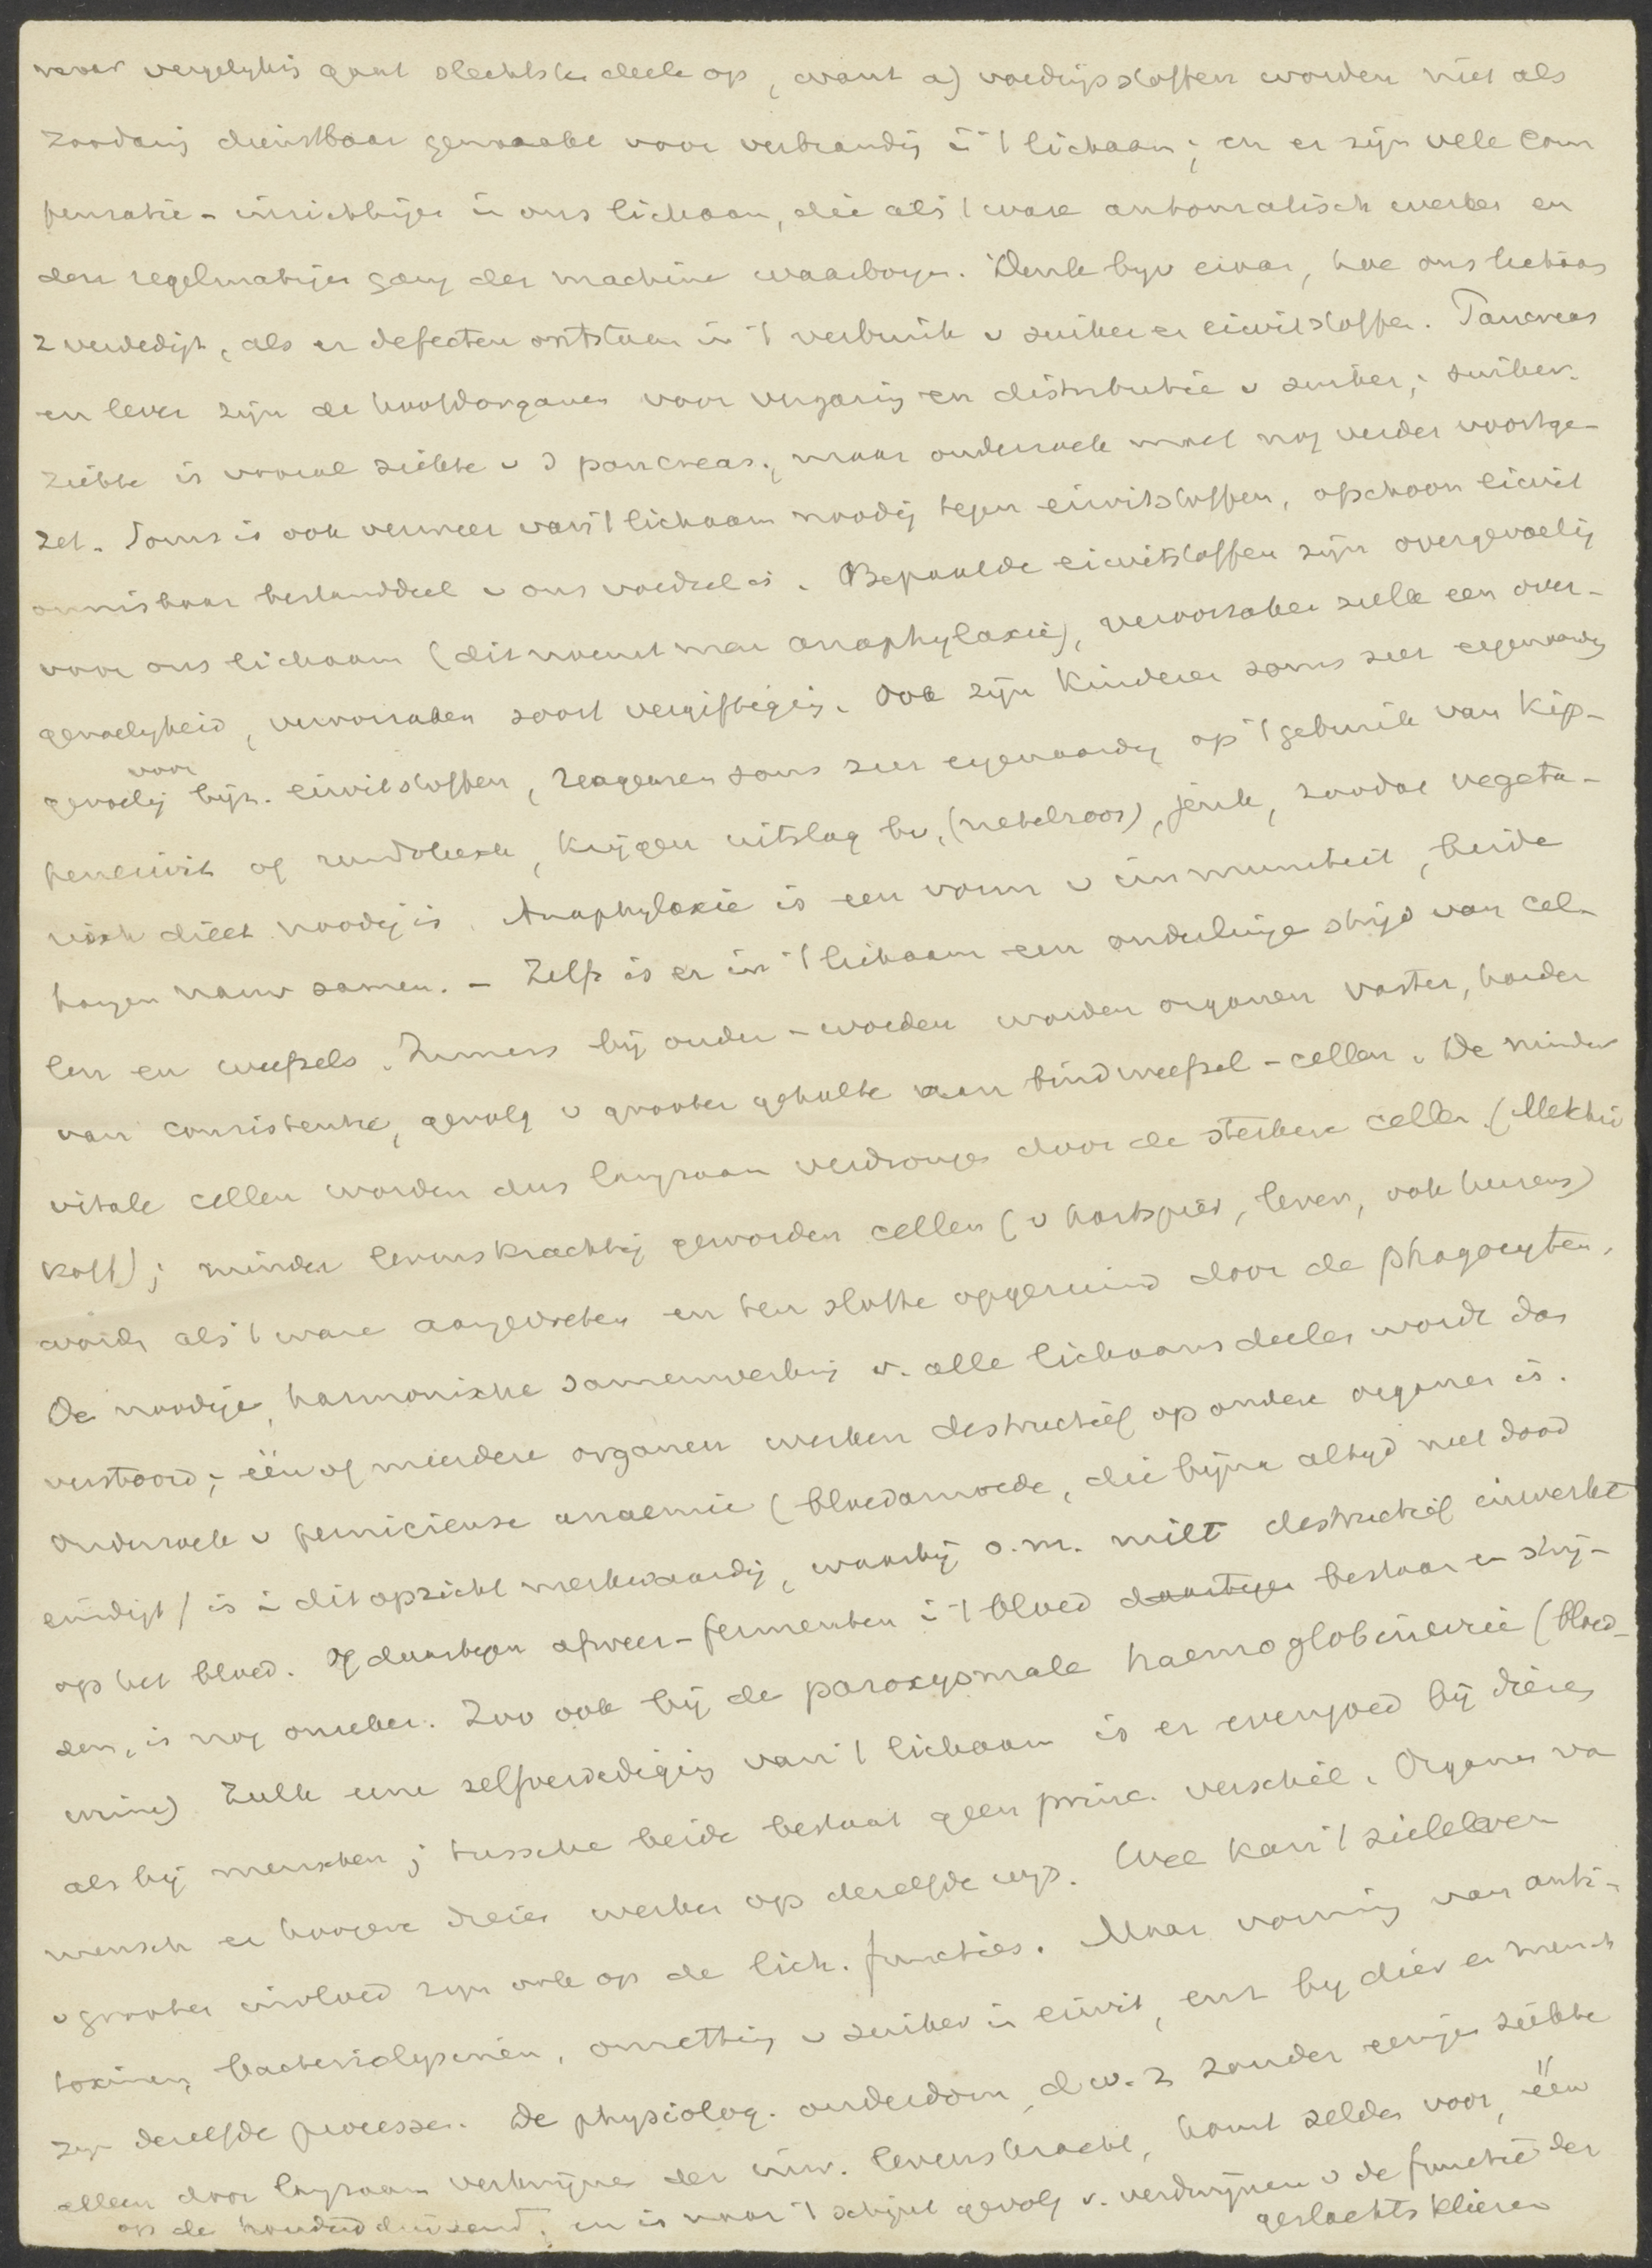 maar vergelijking gaat slechts ten deele op, want a) voedingsstoffen worden niet als
zoodanig dienstbaar gemaakt voor verbranding in 't lichaam; en er zijn vele com
pensatie-inrichtingen in ons lichaam, die als 't ware automatisch werken en
den regelmatigen gang der machine waarborgen. Denk bijv eraan, hoe ons lichaam
z verdedigt, als er defecten ontstaan in 't verbruik v suiker en eiwitstoffen. Pancreas
en lever zijn de hoofdorganen voor vergaring en distributie v suiker; suiker-
ziekte is vooral ziekte v d pancreas, maar onderzoek moet nog verder voortge-
zet. Soms is ook verweer van 't lichaam noodig tegen eiwitstoffen, ofschoon eiwit
onmisbaar bestanddeel v ons voedsel is. Bepaalde eiwitstoffen zijn overgevoelig
voor ons lichaam (dit noemt men anaphylaxie), veroorzaken zulk een over-
gevoeligheid, veroorzaken soort vergiftiging. Ook zijn kinderen soms zeer eigenaardig
gevoelig voor bijz. eiwitstoffen, reageeren soms zeer eigenaardig op 't gebruik van kip-
peneiwit of rundvleesch, krijgen uitslag bv. (netelroos), jeuk, zoodat vegeta-
risch dieet noodig is. Anaphylaxie is een vorm v immuniteit, beide
hangen nauw samen. - Zelfs is er in 't lichaam een onderlinge strijd van cel-
len en weefsels. Immers bij ouder-worden worden organen vaster, harder
van consistentie, gevolg v grooter gehalte aan bindweefsel-cellen. De minder
vitale cellen worden dus langzaam verdrongen door de sterkere cellen (Metchni
koff); minder levenskrachtig geworden cellen (v hartspier, lever, ook hersens)
worden als 't ware aangevreten en ten slotte opgeruimd door de phagocyten.
De noodige, harmonische samenwerking v. alle lichaamsdeelen wordt dan
verstoord; één of meerdere organen werken destructief op andere organen in.
Onderzoek v pernicieuse anaemie (bloedarmoede, die bijna altijd met dood
eindigt) is in dit opzicht merkwaardig, waarbij o.m. milt destructief inwerkt
op het bloed. Of daartegen afweer-fermenten in 't bloed daartegen bestaan en strij-
den, is nog onzeker. Zoo ook bij de paroxysmale haemoglobinurie (bloed-
urine) Zulk eene zelfverdediging van 't lichaam is er evengoed bij dieren
als bij menschen; tusschen beide bestaat geen princ. verschil. Organen va
mensch en hoogere dieren werken op dezelfde wijs. Wel kan 't zieleleven
v grooten invloed zijn ook op de lich. functies. Maar vorming van anti-
toxinen, bacteriolysinen, omzetting v suiker in eiwit, enz bij dier en mensch
zijn dezelfde processen. De physiolog. ouderdom, d.w.z zonder eenige ziekte
alleen door langzaam verdwijnen der inw. levenskracht, komt zelden voor, één
op de honderdduizend, en is naar 't schijnt gevolg v. verdwijnen v de functie der
geslachtsklieren